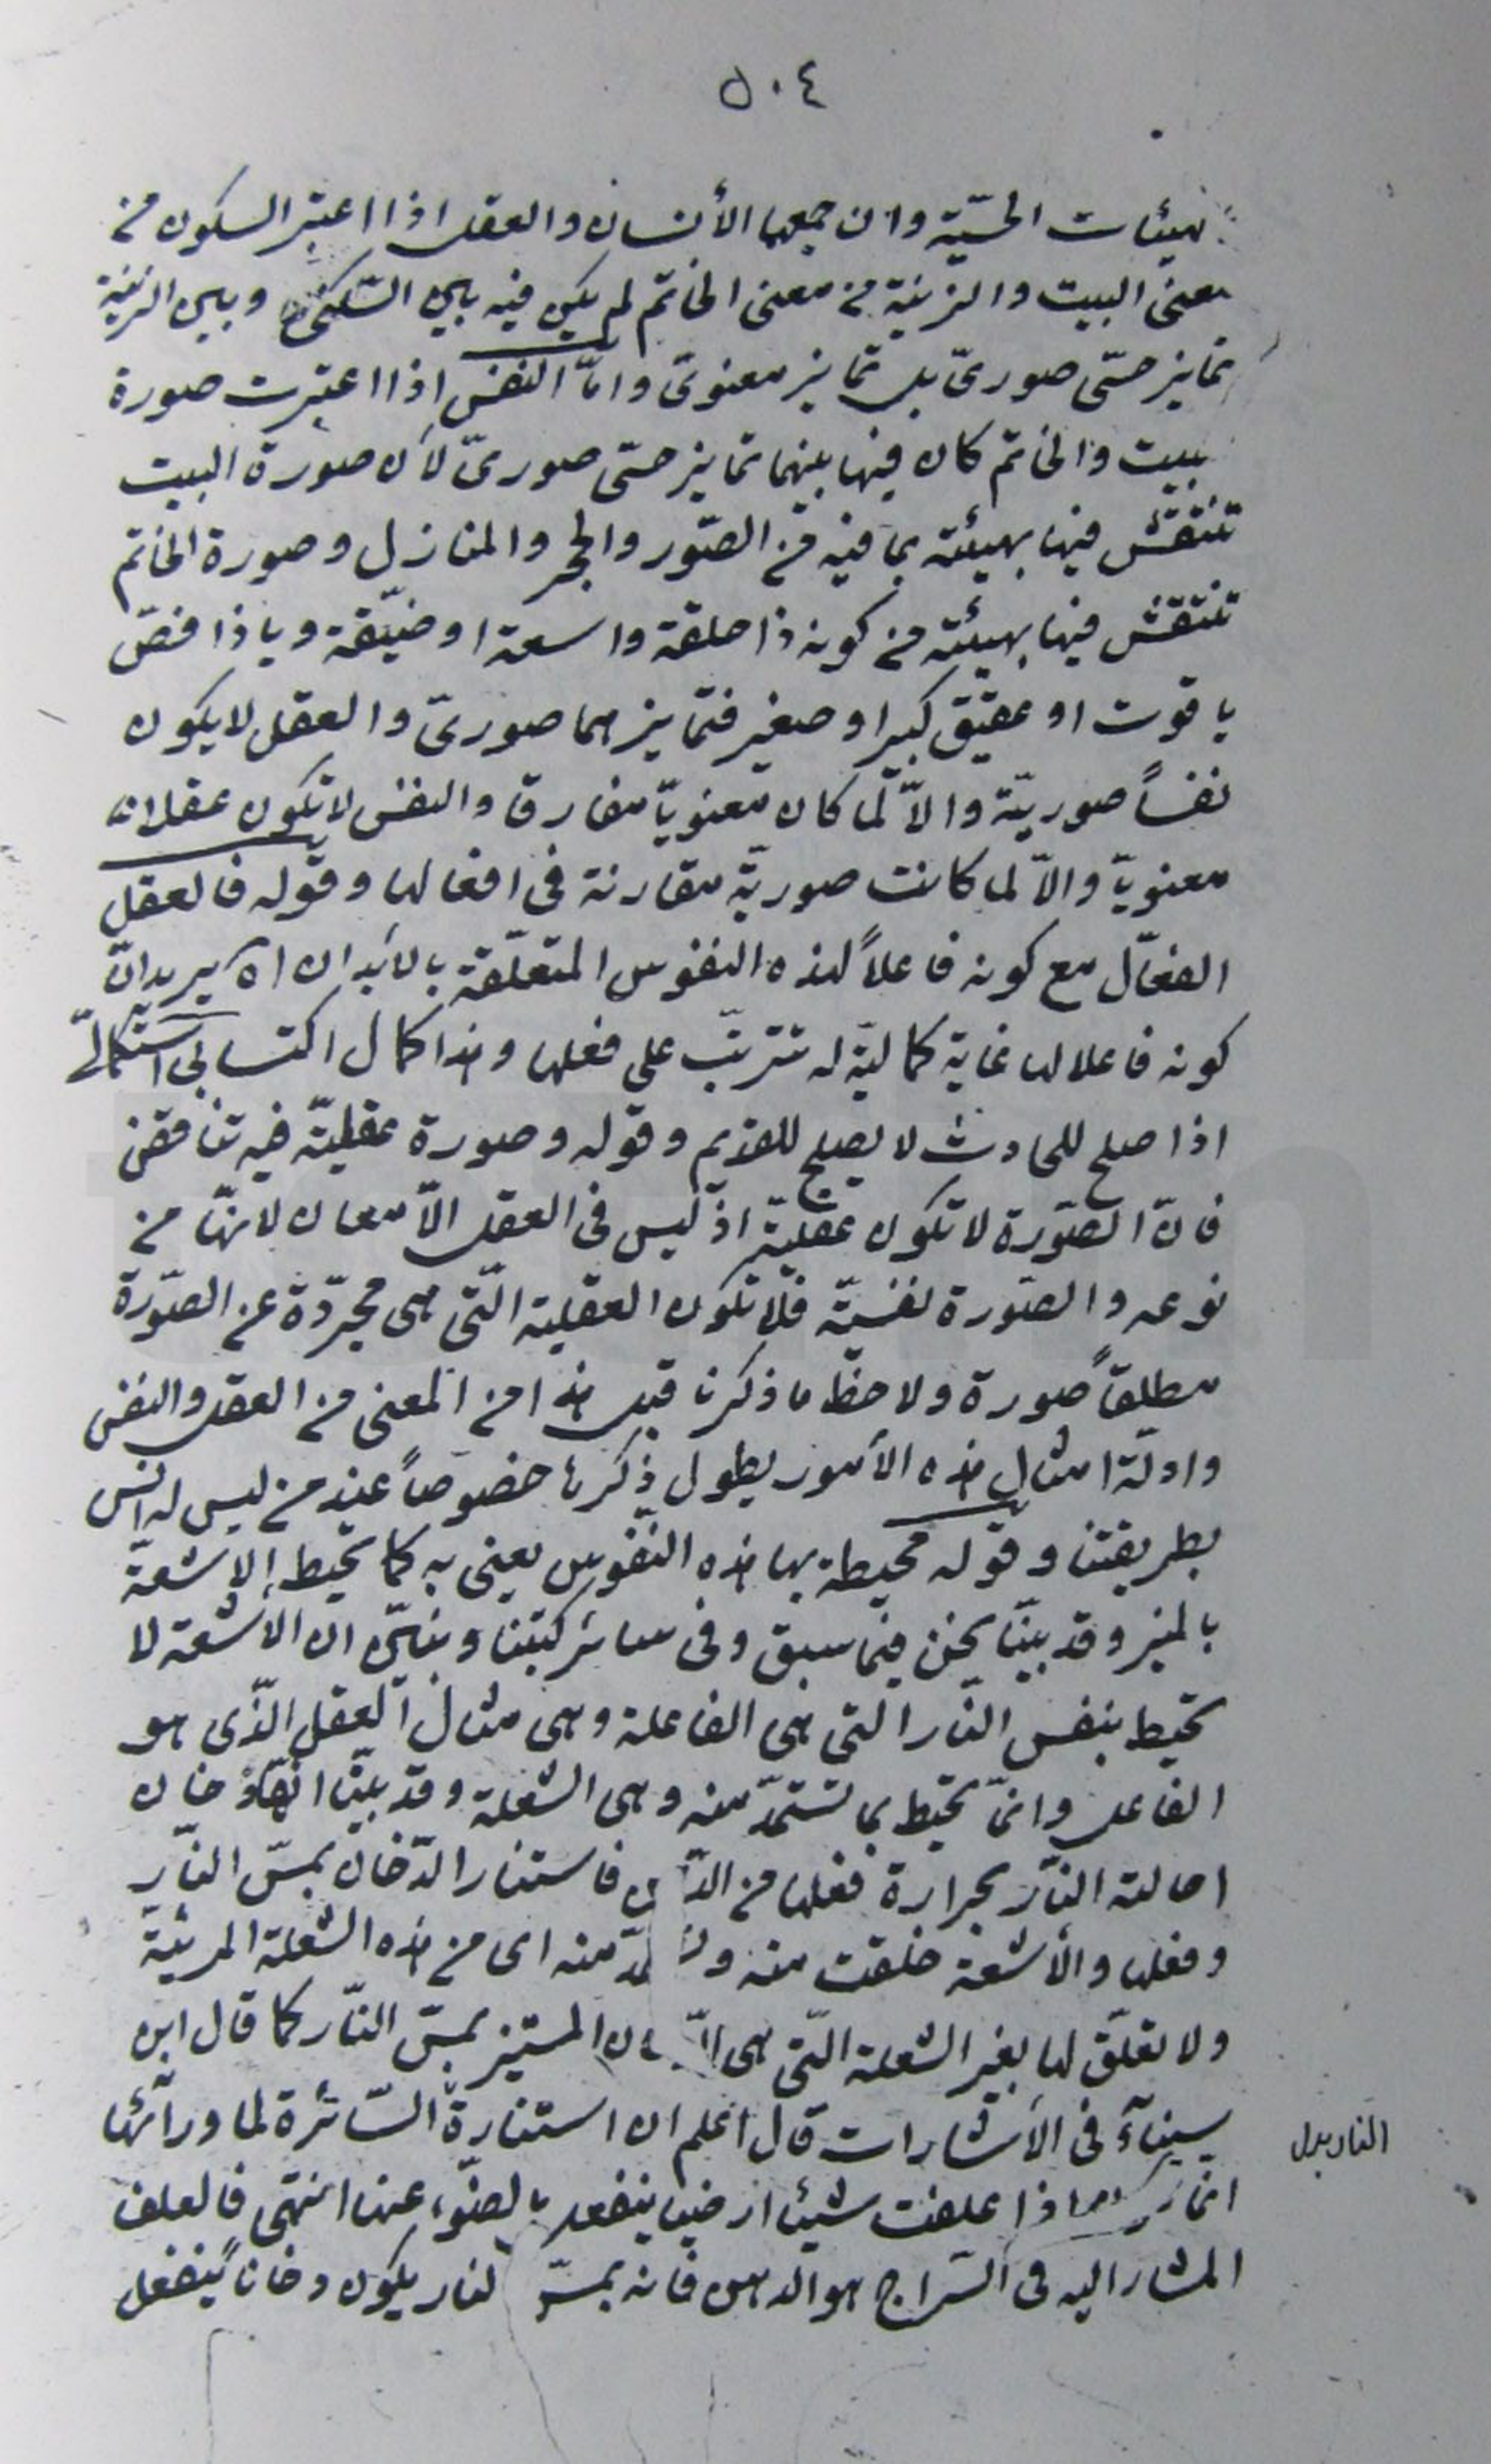 ٥٠٤
لهيئات الحسّيّة وان جمعها الأنسان والعقل اذا اعتبر السكون من
معنى البيت والزينة من معنى الخاتم لم يكن فيه بين السّكنى وبين الزينة
تمايز حسّى صورىّ بل تمايز معنوىّ وامّا النفس اذا اعتبرت صورة
لبيت والخاتم كان فيها بينهما تمايز حسّى صورىّ لأن صورة البيت
تنتقش فيها بهيئته بما فيه من الصّور والحجر والمنازل وصورة الخاتم
تنتقش فيها بهيئته من كونه ذا حلقة واسعة او ضيّقة وياذا فصّ
ياقوت او عقيق كبير او صغير فتمايزهما صورىّ والعقل لا يكون
نفساً صوريّة والاّ لما كان معنويّا مفارقا والنفس لا تكون عقلانه
معنويّا والاّ لما كانت صوريّة مقارنة فى افعالها وقوله فالعقل
الفعّال مع كونه فاعلاً لهذه النفوس المتعلّقة بالأبدان اه يريد انّ
كونه فاعلا لها غاية كماليّة له تترتّب على فعلها وهذا كمال اكتسابىّ استكمالىّ
اذا صلح للحادث لا يصلح للقديم وقوله وصورة عقليّة فيه تناقض
فانّ الصّورة لا تكون عقليّة اذ ليس فى العقل الاّ معان لأنهّا من
نوعه والصّورة نفسيّة فلا تكون العقلية الّتى هى مجرّدة عن الصّورة
مطلقاً صورة ولاحظ ما ذكرنا قبل هذا من المعنى من العقل والنفس
وادلّة امثال هذه الأمور يطول ذكرها خصوصاً عند من ليس له انس
بطريقتنا وقوله محيطة بها هذه النّفوس يعنى به كما تحيط الاشعة
بالمنير وقد بيّنّا نحن فيما سبق وفى سائر كتبنا ونبيّن ان الأشعة لا
تحيط بنفس النّار التى هى الفاعلة وهى مثال العقل الّذى هو
الفاعل وانمّا تحيط بما تستمدّ منه وهى الشعلة وقد بيّنّا انهّا دخان
احالته النّار بحرارة فعلها من الدّهن فاستنار الدّخان بمسّ النّار
وفعلها والأشعة خلقت منه وتستمدّ منه اى من هذه الشّعلة المرئيّة
ولا تعلّق لها بغير الشعلة الّتى هى الدّخان المستنير بمسّ النّار كما قال ابن
سيناۤء فى الأشارات قال اعلم ان استنارة السّائرة لما ورآئها
انما اذا علقت شيئا ارضيا ينفعل بالضّوء عنها انتهى فالعلف
المشار اليه فى السّراج هو الدهن فانه بمسّ النار يكون دخاناً ينفعل
النار بدل